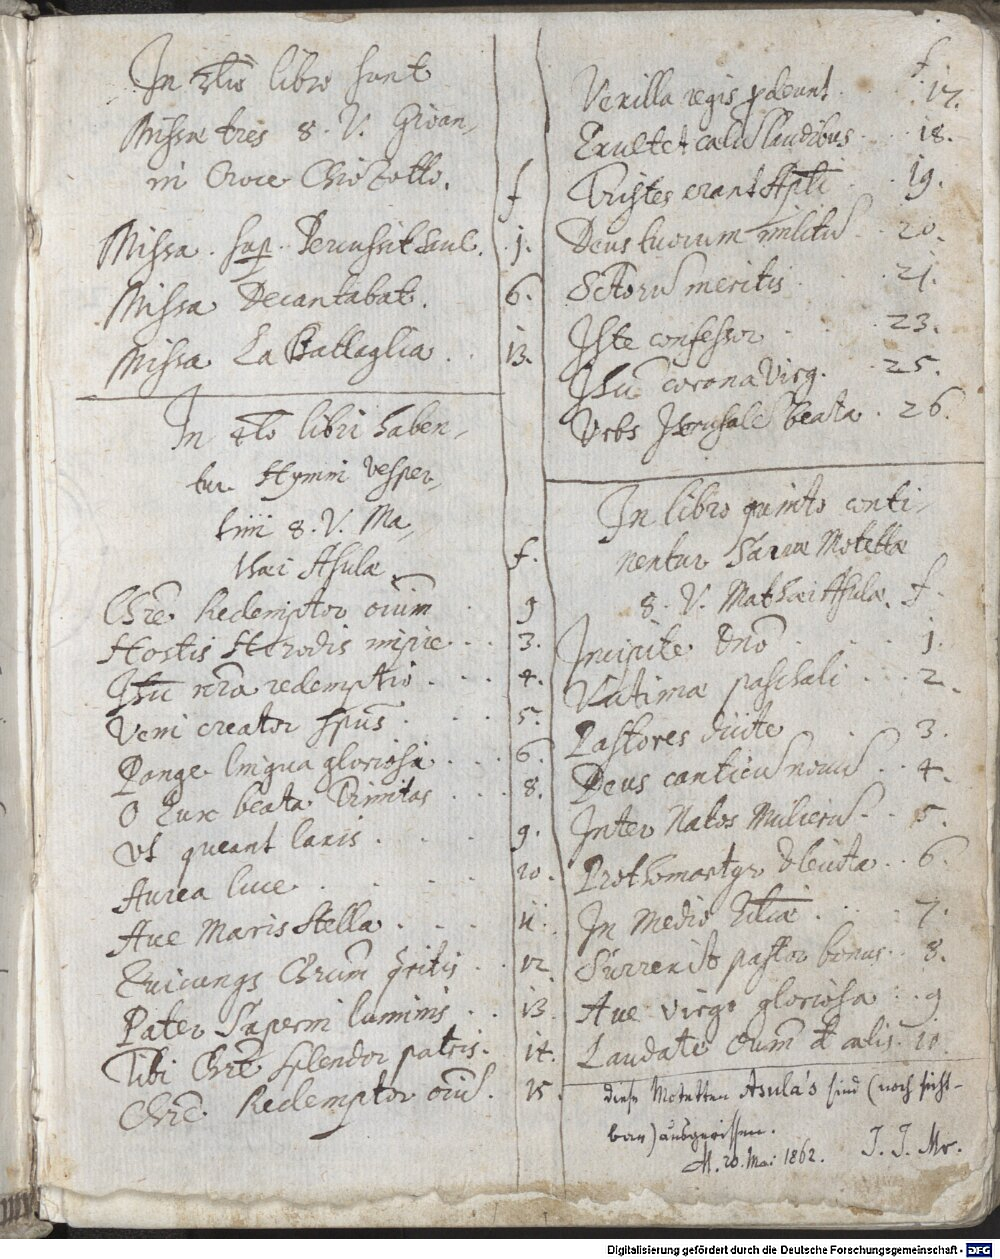 In 3tio libro sunt
Missae tres 8. V. Giovan,
ni Croce Chiozotto. f
Missa. sup. Percussit Saul. 1.
Missa Decantabat. 6.
Missa La Battaglia . . 13.
In 4to libri haben,
tur Hymni Vesper,
tini 8. V. Ma,
thaei Asulae. f.
Chrē Redemptor oīum . 9
Hostis Herodis impie . . 3.
Jhū nr̄a redemptio . . . 4.
Veni creator spūs . . . 5.
Pange lingua gloriosa . . . 6.
O Lux beata Trinitas . . . 8.
Ut queant laxis . . . 9.
Aurea luce . . . 10.
Ave Maris Stella . . . 11.
Quicunq Chrūm qritis . . 12
Pater Superni luminis . . 13.
Tibi Chrē splendor patris. 14.
Chrē Redemptor oīū. 15
f
Vexilla regis pdeunt . 17.
Exultet caelū laudibus . . 18.
Tristes erant Apli . . 19.
Deus tuorum militū . . 20.
Sctorū meritis . . 21.
Iste confessor . . 23.
Jhū corona Virg. . . 25.
Urbs Jherusalē beata . 26.
In libro quinto conti-
nentur Sacrae Motettae
8. V. Mathaei Asulae. f.
Incipite Dnō . . . 1.
Victimae paschali . . . 2.
Pastores dicite . 3.
Deus canticū novū . . 4.
Inter Natos Mulierū . . 5.
Prothomartyr . . 6.
In Medio . . . 7.
Surrexit pastor bonus . . 8.
Ave virgo gloriosa . . 9
Laudate Dnūm de caelis. 10.
diese Motetten Asula's sind (noch sicht-
bar) ausgerissen.
M. 20. Mai 1862. J. J. Mr.
Digitalisierung gefördert durch die Deutsche Forschungsgemeinschaft - DFG